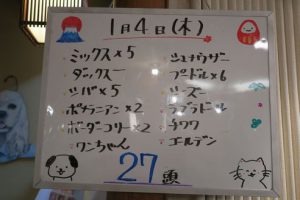 1月4日(木)
ミックス×5
ダックス
シバ×5
ポメラニアン×2
ボーダーコリー×2
ワンちゃん
シュナウザー
プードル×6
シーズー
ラブラドール
チワワ
27頭